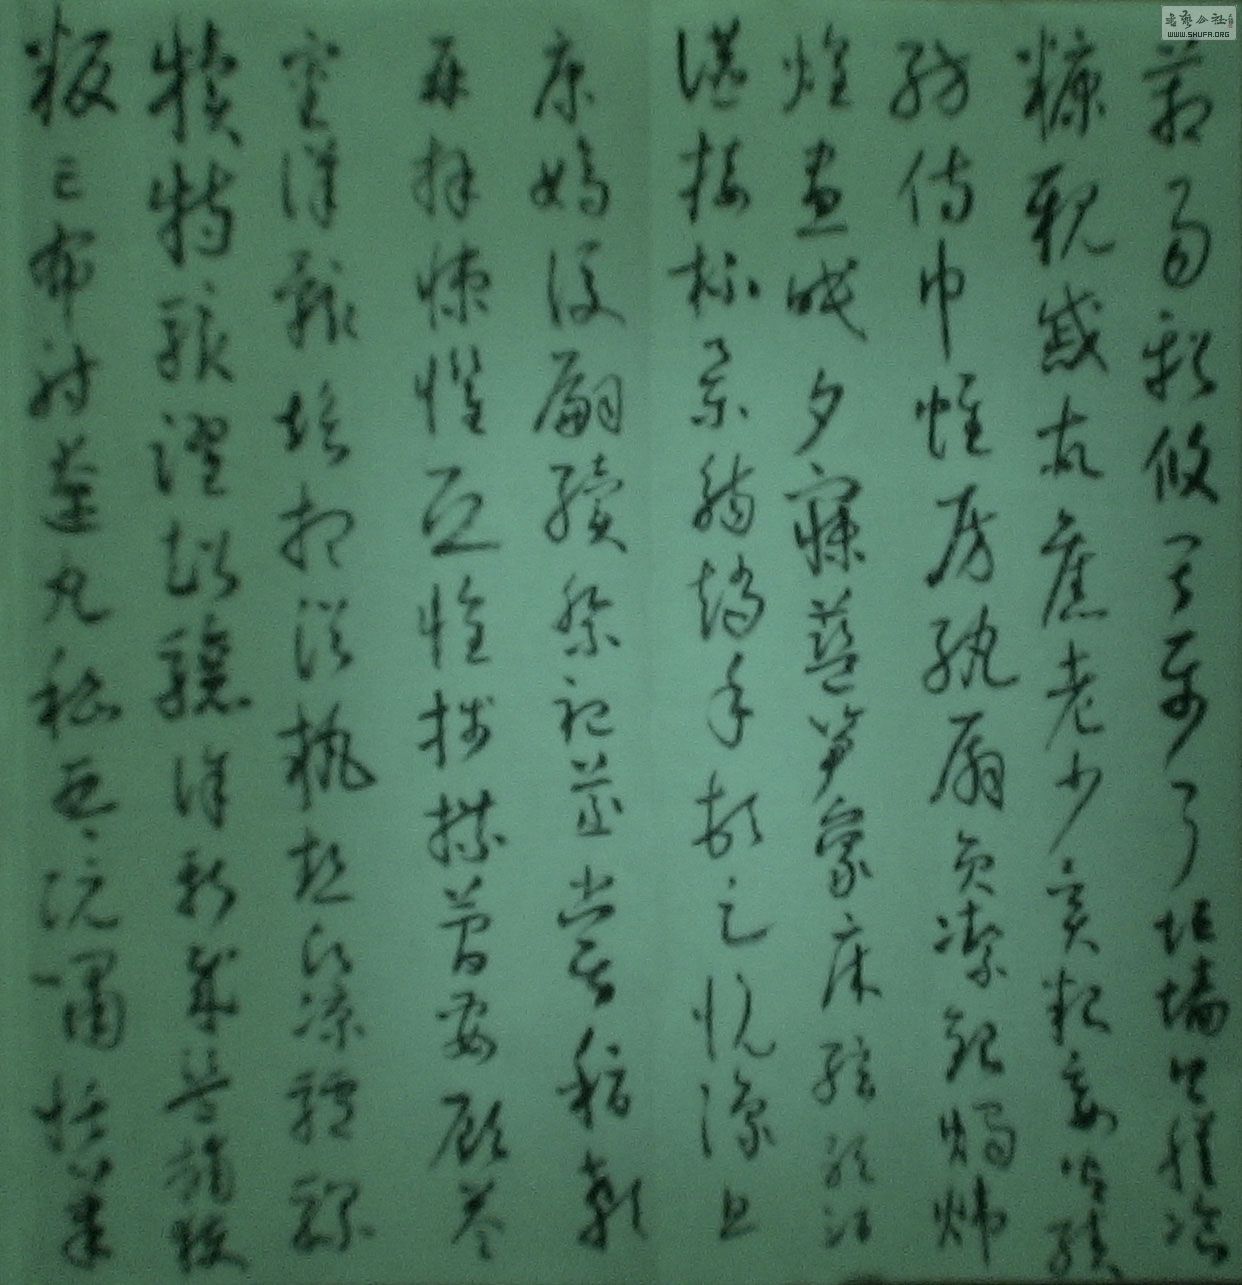 易輶攸畏屬耳垣墻具膳
糠親戚故舊老少異糧妾御績
紡侍巾帷房紈扇圓潔銀燭煒
煌晝眠夕寐藍筍象床絃歌酒
讌接杯舉觴矯手頓足悅豫且
康嫡後嗣續祭祀蒸嘗稽顙
再拜悚懼恐惶牋牒簡要顧答
審詳骸垢想浴執熱願涼驢騾
犢特駭躍超驤誅斬賊盜捕獲
叛亡布射遼丸嵇琴阮嘯恬筆
WWW.SHUFA.ORG